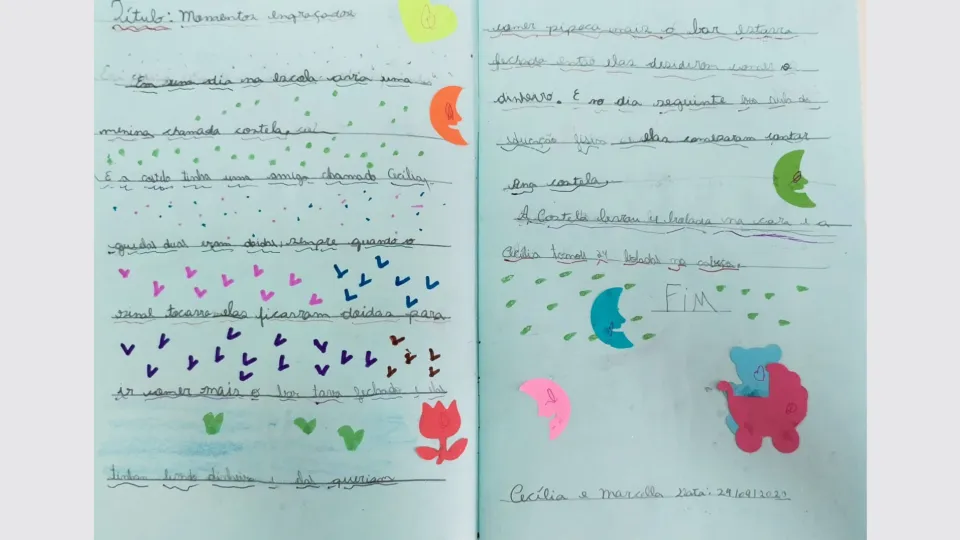 Título: Momentos engraçados
Em uma dia na escola avia uma
menina chamada costela
E a costela tinha uma amiga chamada Cecilia,
as duas eram doidas, sempre quando o
sinal tocava elas ficarram doidas para
ir comer mais o bar tava fechado e elas
tinham levado dinheiro e elas queriam
comer pipoca mais o bar estava
fechado então elas desidiram comer o
dinheiro. E no dia seguinte
educação física e elas começaram
costela
A Costela levou 15 bolada na cara e a
Cecília tomou 24 boladas na cabeça.
FIM
Cecília e Marcella Data: 29/09/2021